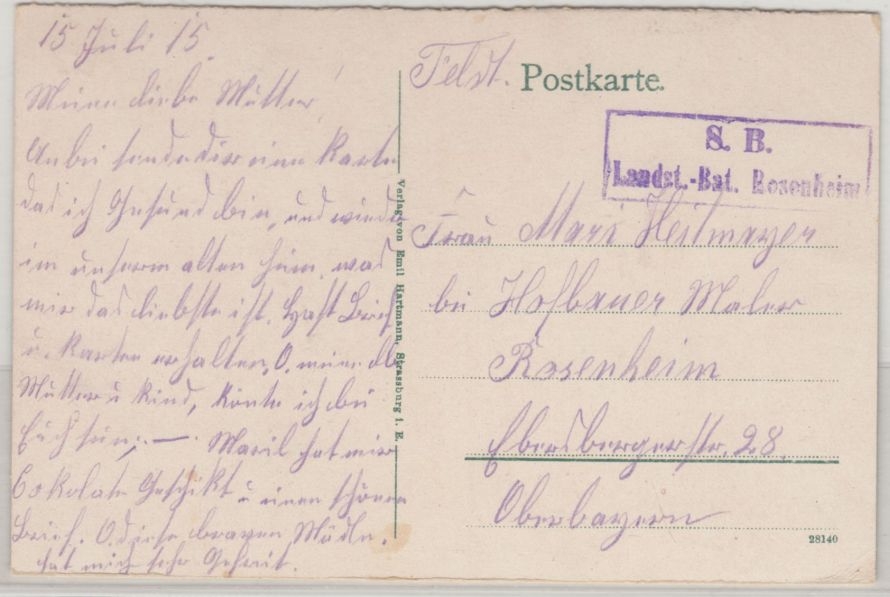 15 Juli 15.
Meine liebe Mutter!
Anbei sende dir eine Karte
das ich Gesund bin, und wieder
im unserm alten heim, was
mir das liebste ist. Hast Brief
u. Karten erhalten, O. meine lb
Mutter u Kind, könte ich bei
Euch sein, — . Maril hat mir
Cokolate Geschikt u einen schönen
Brief. O diese braven Mädln.
hat mich sehr Gefreit.
Verlag von Emil Hartmann, Strassburg i. E.
Feldt. Postkarte.
S. B.
Landst.-Bat. Rosenheim
Frau Mari Heilmayer
bei Hofbauer Maler
Rosenheim
Ebersbergerstr. 28.
Oberbayern
28140